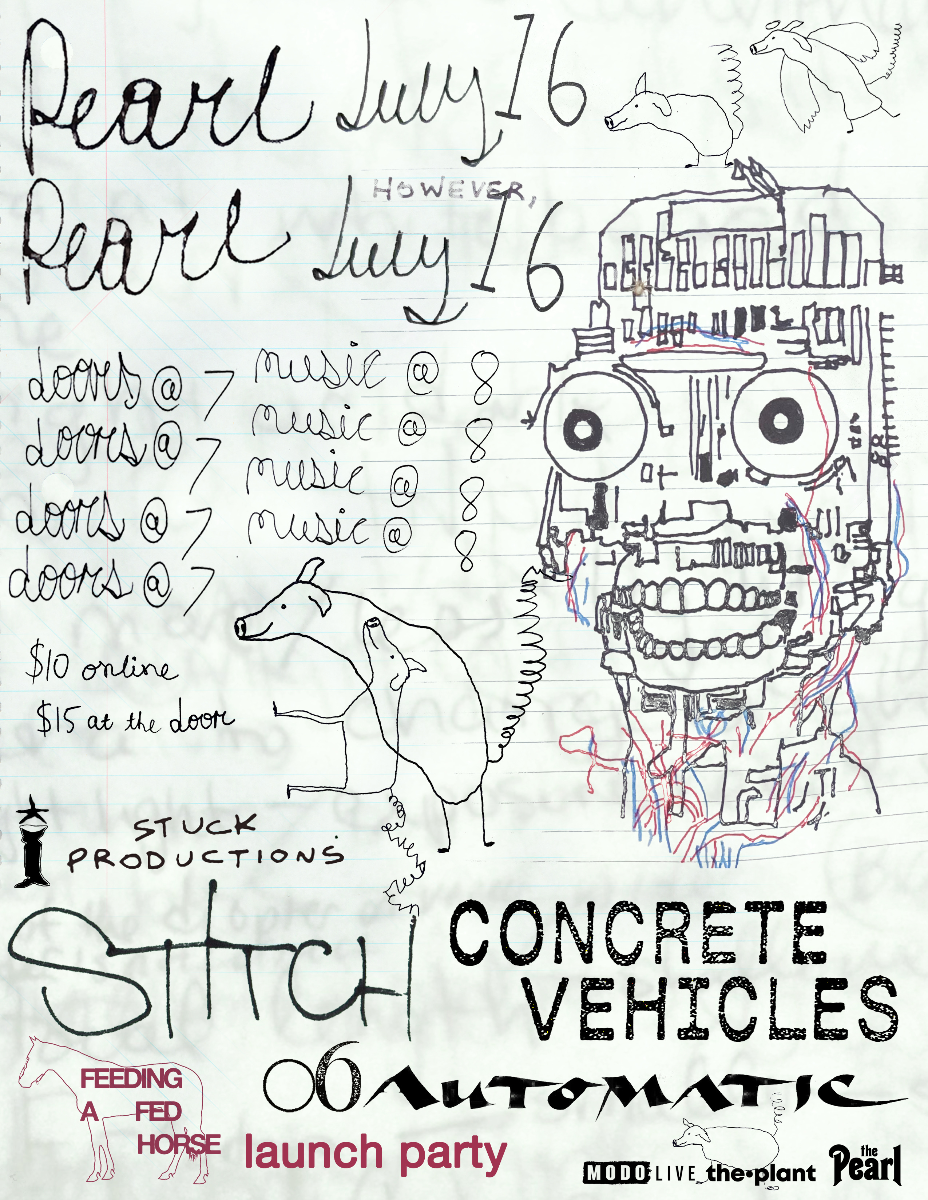 Pearl July 16
HOWEVER,
Pearl July 16
doors @ 7 music @ 8
doors @ 7 music @ 8
doors @ 7 music @ 8
doors @ 7 music @ 8
$10 online
$15 at the door
STUCK
PRODUCTIONS
STITCH
CONCRETE
VEHICLES
06 AUTOMATIC
FEEDING
A FED
HORSE
launch party
MODO LIVE the•plant the Pearl